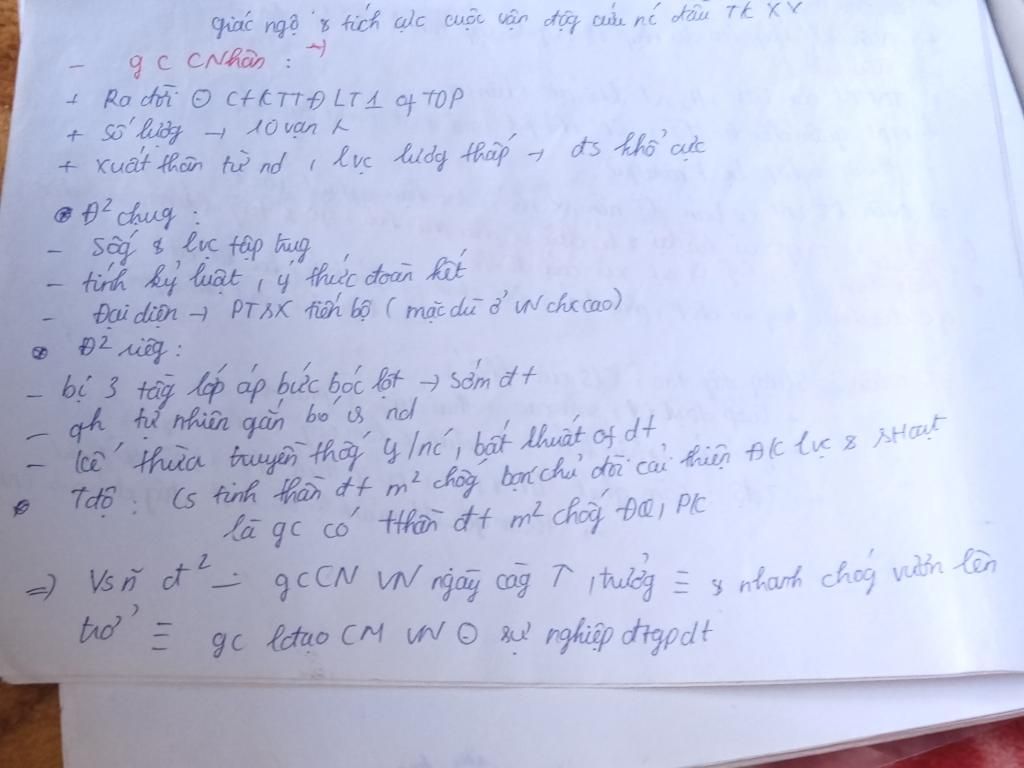 giác ngộ & tích cực cuộc vận độg cứu nc đầu TK XX
- gc CNhân :
+ Ra đời ⊙ CtKTTĐLT1 of TDP
+ Số lượg → 10 vạn
+ xuất thân từ nd , lực lượg thấp → đs khổ cực
Đ² chug :
- Sốg & lvc tập trug
- tính kỷ luật , ý thức đoàn kết
- Đại diện → PTSX tiến bộ ( mặc dù ở VN chx cao)
Đ² riêg :
- bị 3 tầg lớp áp bức bóc lột → sớm đt
- qh tự nhiên gắn bó vs nd
- kế thừa truyền thốg y/nc , bất khuất of dt
Tđộ : Cs tinh thần đt m² chốg bọn chủ đòi cải thiện ĐK lvc & sHoạt
là gc có tthần đt m² chốg ĐQ, PK
=> Vs ~ đ² — gcCN VN ngày càg ↑ , trưởg ≡ & nhanh chóg vươn lên
trở ≡ gc lđạo CM VN ⊙ sự nghiệp đtgpdt